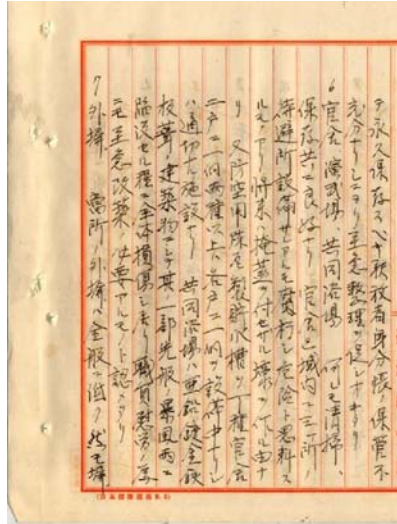 テ永久保存スベキ釈放者身分帳ノ保管不
充分ナリシニヨリ至急整理ヲ促シオキタリ
6 官舎、演武場、共同浴場 何レモ清掃、
保存共ニ良好ナリ 官舎区域内ニ三ヶ所ノ
待避所設備サレアルモ腐朽シ危険ト思料ス
ルモノアリ将来ハ掩蓋ヲ付セサル様ニ作ル由ナ
リ 又防空用トシテ製 水槽ヲ丁種官舎
二戸ニ一個丙種以上ハ各戸ニ一個ヲ設備中ナリシ
ハ適切ナル施設ナリ 共同浴場ハ亜鉛鍍金鉄
板葺ノ建築物ニシテ其一部先般ノ暴風雨ニ
陥没セル程ニ全体損傷シ居リ職員慰労ノ為
ニモ至急改築ノ必要アルモノト認メタリ
7 外塀 当所ノ外塀ハ全般ニ低ク然モ塀